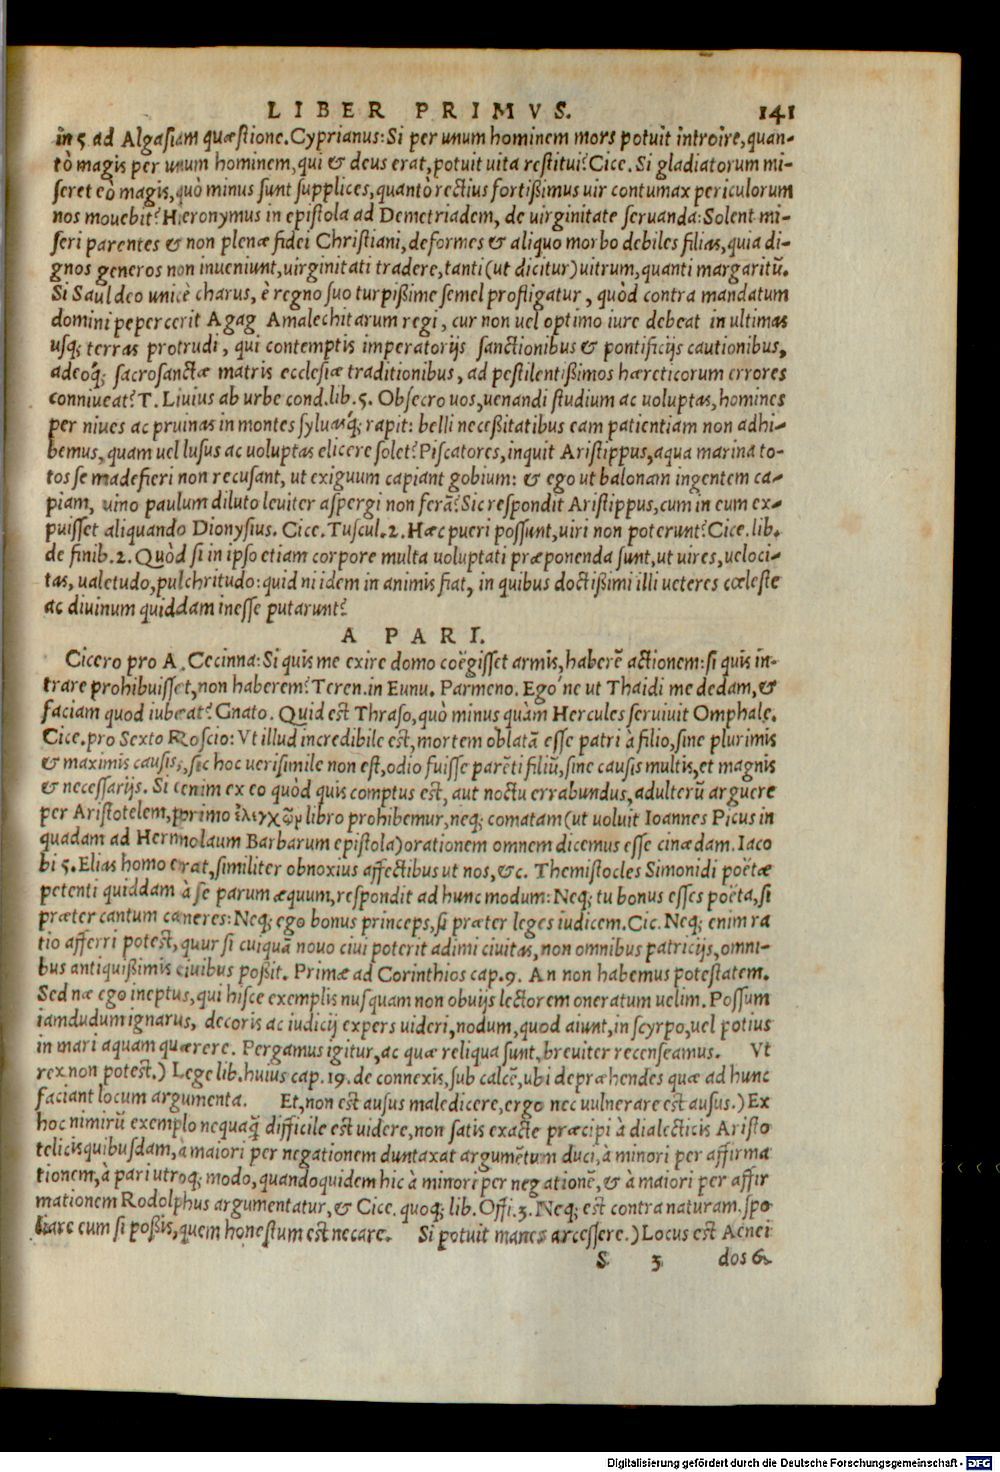 LIBER PRIMVS. 141
in 5 ad Algasiam quæstione. Cyprianus: Si per unum hominem mors potuit introire, quan-
tò magis per unum hominem, qui & deus erat, potuit uita restitui? Cice. Si gladiatorum mi-
seret eò magis, quò minus sunt supplices, quantò rectius fortißimus uir contumax periculorum
nos mouebit? Hieronymus in epistola ad Demetriadem, de uirginitate seruanda: Solent mi-
seri parentes & non plenæ fidei Christiani, deformes & aliquo morbo debiles filias, quia di-
gnos generos non inueniunt, uirginitati tradere, tanti (ut dicitur) uitrum, quanti margaritū.
Si Saul deo unicè charus, è regno suo turpißime semel profligatur, quòd contra mandatum
domini pepercerit Agag Amalechitarum regi, cur non uel optimo iure debeat in ultimas
usq; terras protrudi, qui contemptis imperatorijs sanctionibus & pontificijs cautionibus,
adeoq́; sacrosanctæ matris ecclesiæ traditionibus, ad pestilentißimos hæreticorum errores
conniueat? T. Liuius ab urbe cond. lib. 5. Obsecro uos, uenandi studium ac uoluptas, homines
per niues ac pruinas in montes syluasq́; rapit: belli neceßitatibus eam patientiam non adhi-
bemus, quam uel lusus ac uoluptas elicere solet? Piscatores, inquit Aristippus, aqua marina to-
tos se madefieri non recusant, ut exiguum capiant gobium: & ego ut balonam ingentem ca-
piam, uino paulum diluto leuiter aspergi non ferā? Sic respondit Aristippus, cum in eum ex-
puisset aliquando Dionysius. Cice. Tuscul. 2. Hæc pueri possunt, uiri non poterunt? Cice. lib.
de finib. 2. Quòd si in ipso etiam corpore multa uoluptati præponenda sunt, ut uires, ueloci-
tas, ualetudo, pulchritudo: quid ni idem in animis fiat, in quibus doctißimi illi ueteres cœleste
ac diuinum quiddam inesse putarunt?
A PARI.
Cicero pro A. Cecinna: Si quis me exire domo coëgisset armis, haberē actionem: si quis in-
trare prohibuisset, non haberem? Teren. in Eunu. Parmeno. Ego'ne ut Thaidi me dedam, &
faciam quod iubeat? Gnato. Quid est Thraso, quò minus quàm Hercules seruiuit Omphale.
Cice. pro Sexto Roscio: Vt illud incredibile est, mortem oblatā esse patri à filio, sine plurimis
& maximis causis, sic hoc uerisimile non est, odio fuisse parēti filiū, sine causis multis, et magnis
& necessarijs. Si cenim ex eo quòd quis comptus est, aut noctu errabundus, adulterū arguere
per Aristotelem, primo ἐλεγχῶν libro prohibemur, neq; comatam (ut uoluit Ioannes Picus in
quadam ad Hermolaum Barbarum epistola) orationem omnem dicemus esse cinædam. Iaco
bi 5. Elias homo erat, similiter obnoxius affectibus ut nos, &c. Themistocles Simonidi poëtæ
petenti quiddam à se parum æquum, respondit ad hunc modum: Neq; tu bonus esses poëta, si
præter cantum caneres: Neq; ego bonus princeps, si præter leges iudicem. Cic. Neq; enim ra
tio afferri potest, quur si cuiquā nouo ciui poterit adimi ciuitas, non omnibus patricijs, omni-
bus antiquißimis ciuibus poßit. Primæ ad Corinthios cap. 9. An non habemus potestatem.
Sed næ ego ineptus, qui hisce exemplis nusquam non obuijs lectorem oneratum uelim. Possum
iamdudum ignarus, decoris ac iudicij expers uideri, nodum, quod aiunt, in scyrpo, uel potius
in mari aquam quærere. Pergamus igitur, ac quæ reliqua sunt, breuiter recenseamus. Vt
rex non potest.) Lege lib. huius cap. 19. de connexis, sub calcē, ubi depræhendes quæ ad hunc
faciant locum argumenta. Et, non est ausus maledicere, ergo nec uulnerare est ausus.) Ex
hoc nimirū exemplo nequaq̃ difficile est uidere, non satis exacte præcipi à dialecticis Aristo
telicis quibusdam, à maiori per negationem duntaxat argumētum duci, à minori per affirma
tionem, à pari utroq; modo, quandoquidem hic à minori per negationē, & à maiori per affir
mationem Rodolphus argumentatur, & Cice. quoq; lib. Offi. 3. Neq; est contra naturam spo
liare eum si poßis, quem honestum est necare. Si potuit manes arcessere.) Locus est Aenei
S 3 dos 6.
Digitalisierung gefördert durch die Deutsche Forschungsgemeinschaft - DFG